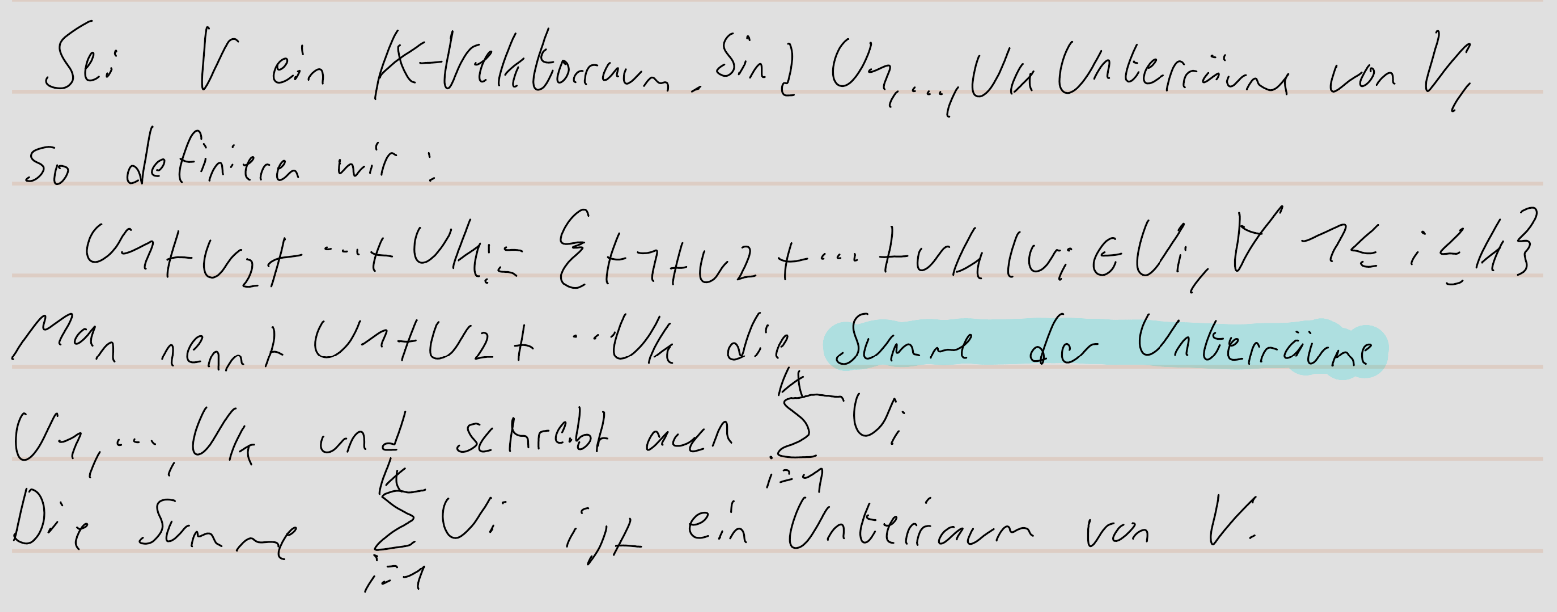 Sei V ein K-Vektorraum. Sind U1,...,Uk Unterräume von V,
so definieren wir:
U1+U2+ ...+ Uk:= {+1+u2 +...+uk | ui ∈ Ui, ∀ 1≤ i ≤k}
Man nennt U1+U2+ ...Uk die Summe der Unterräume
U1,...,Uk und schreibt auch ∑_{i=1}^{k} Ui
Die Summe ∑_{i=1}^{k} Ui ist ein Unterraum von V.